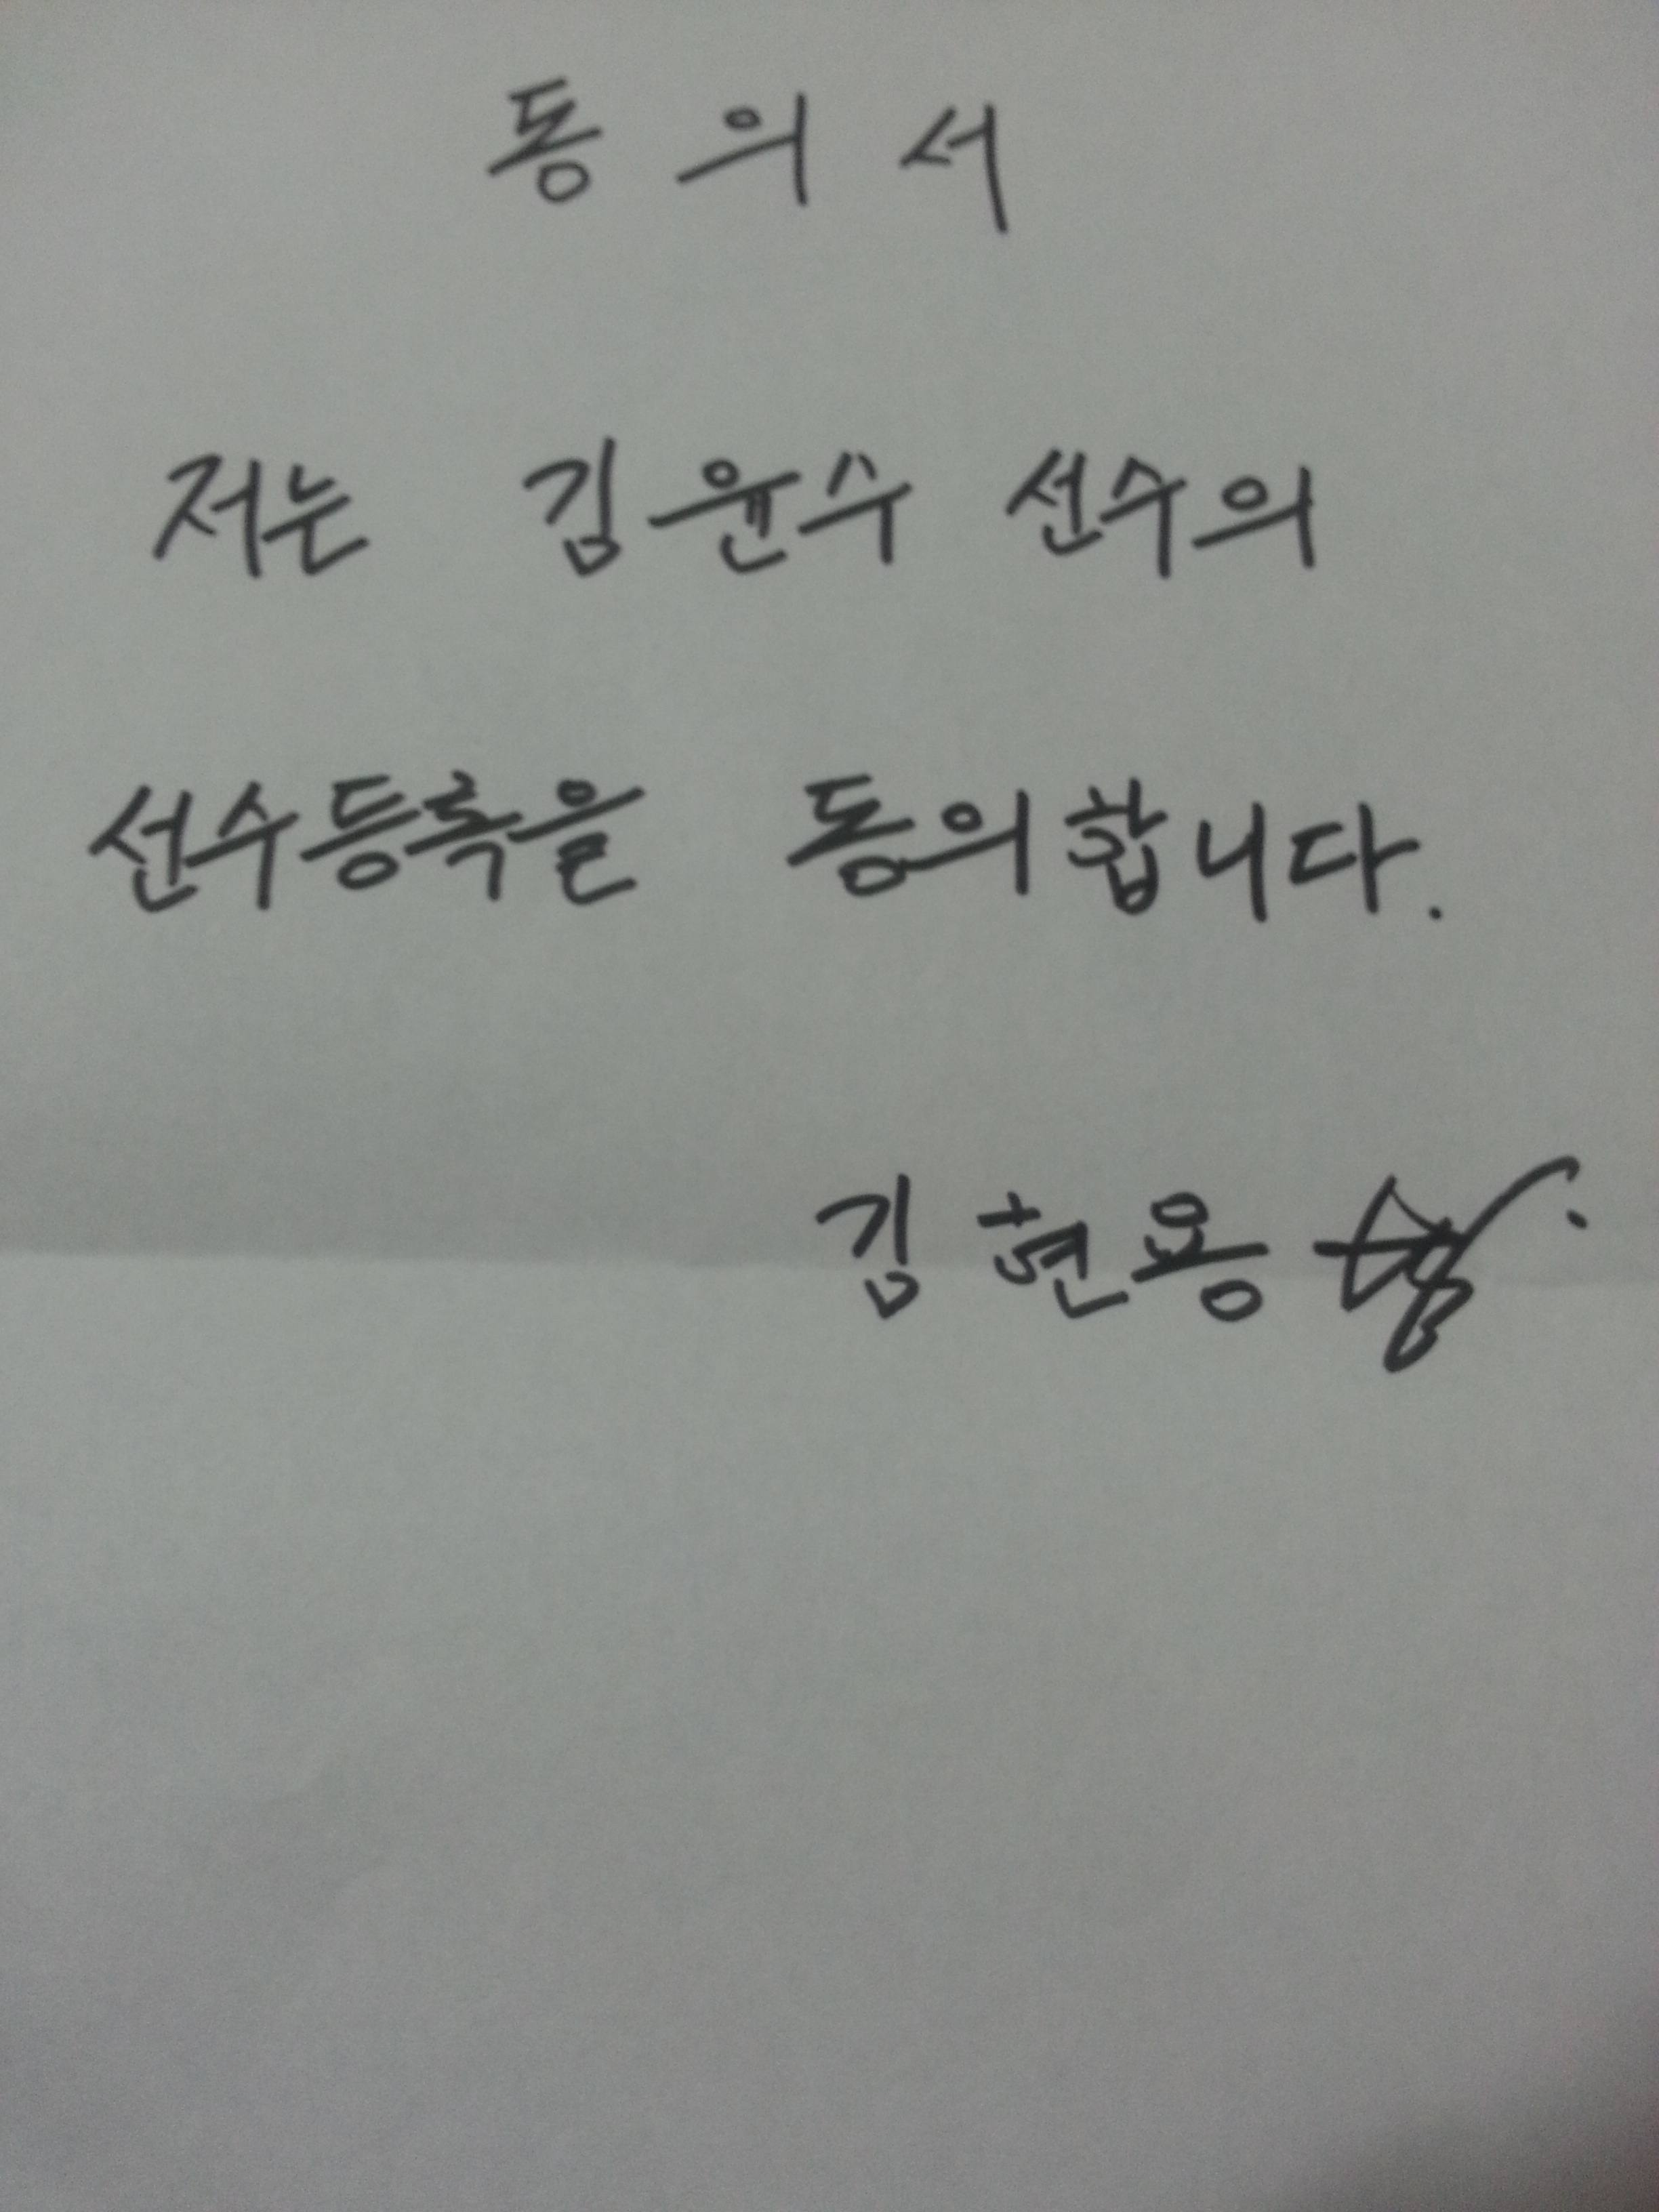 동 의 서
저는 김윤수 선수의
선수등록을 동의합니다.
김현용